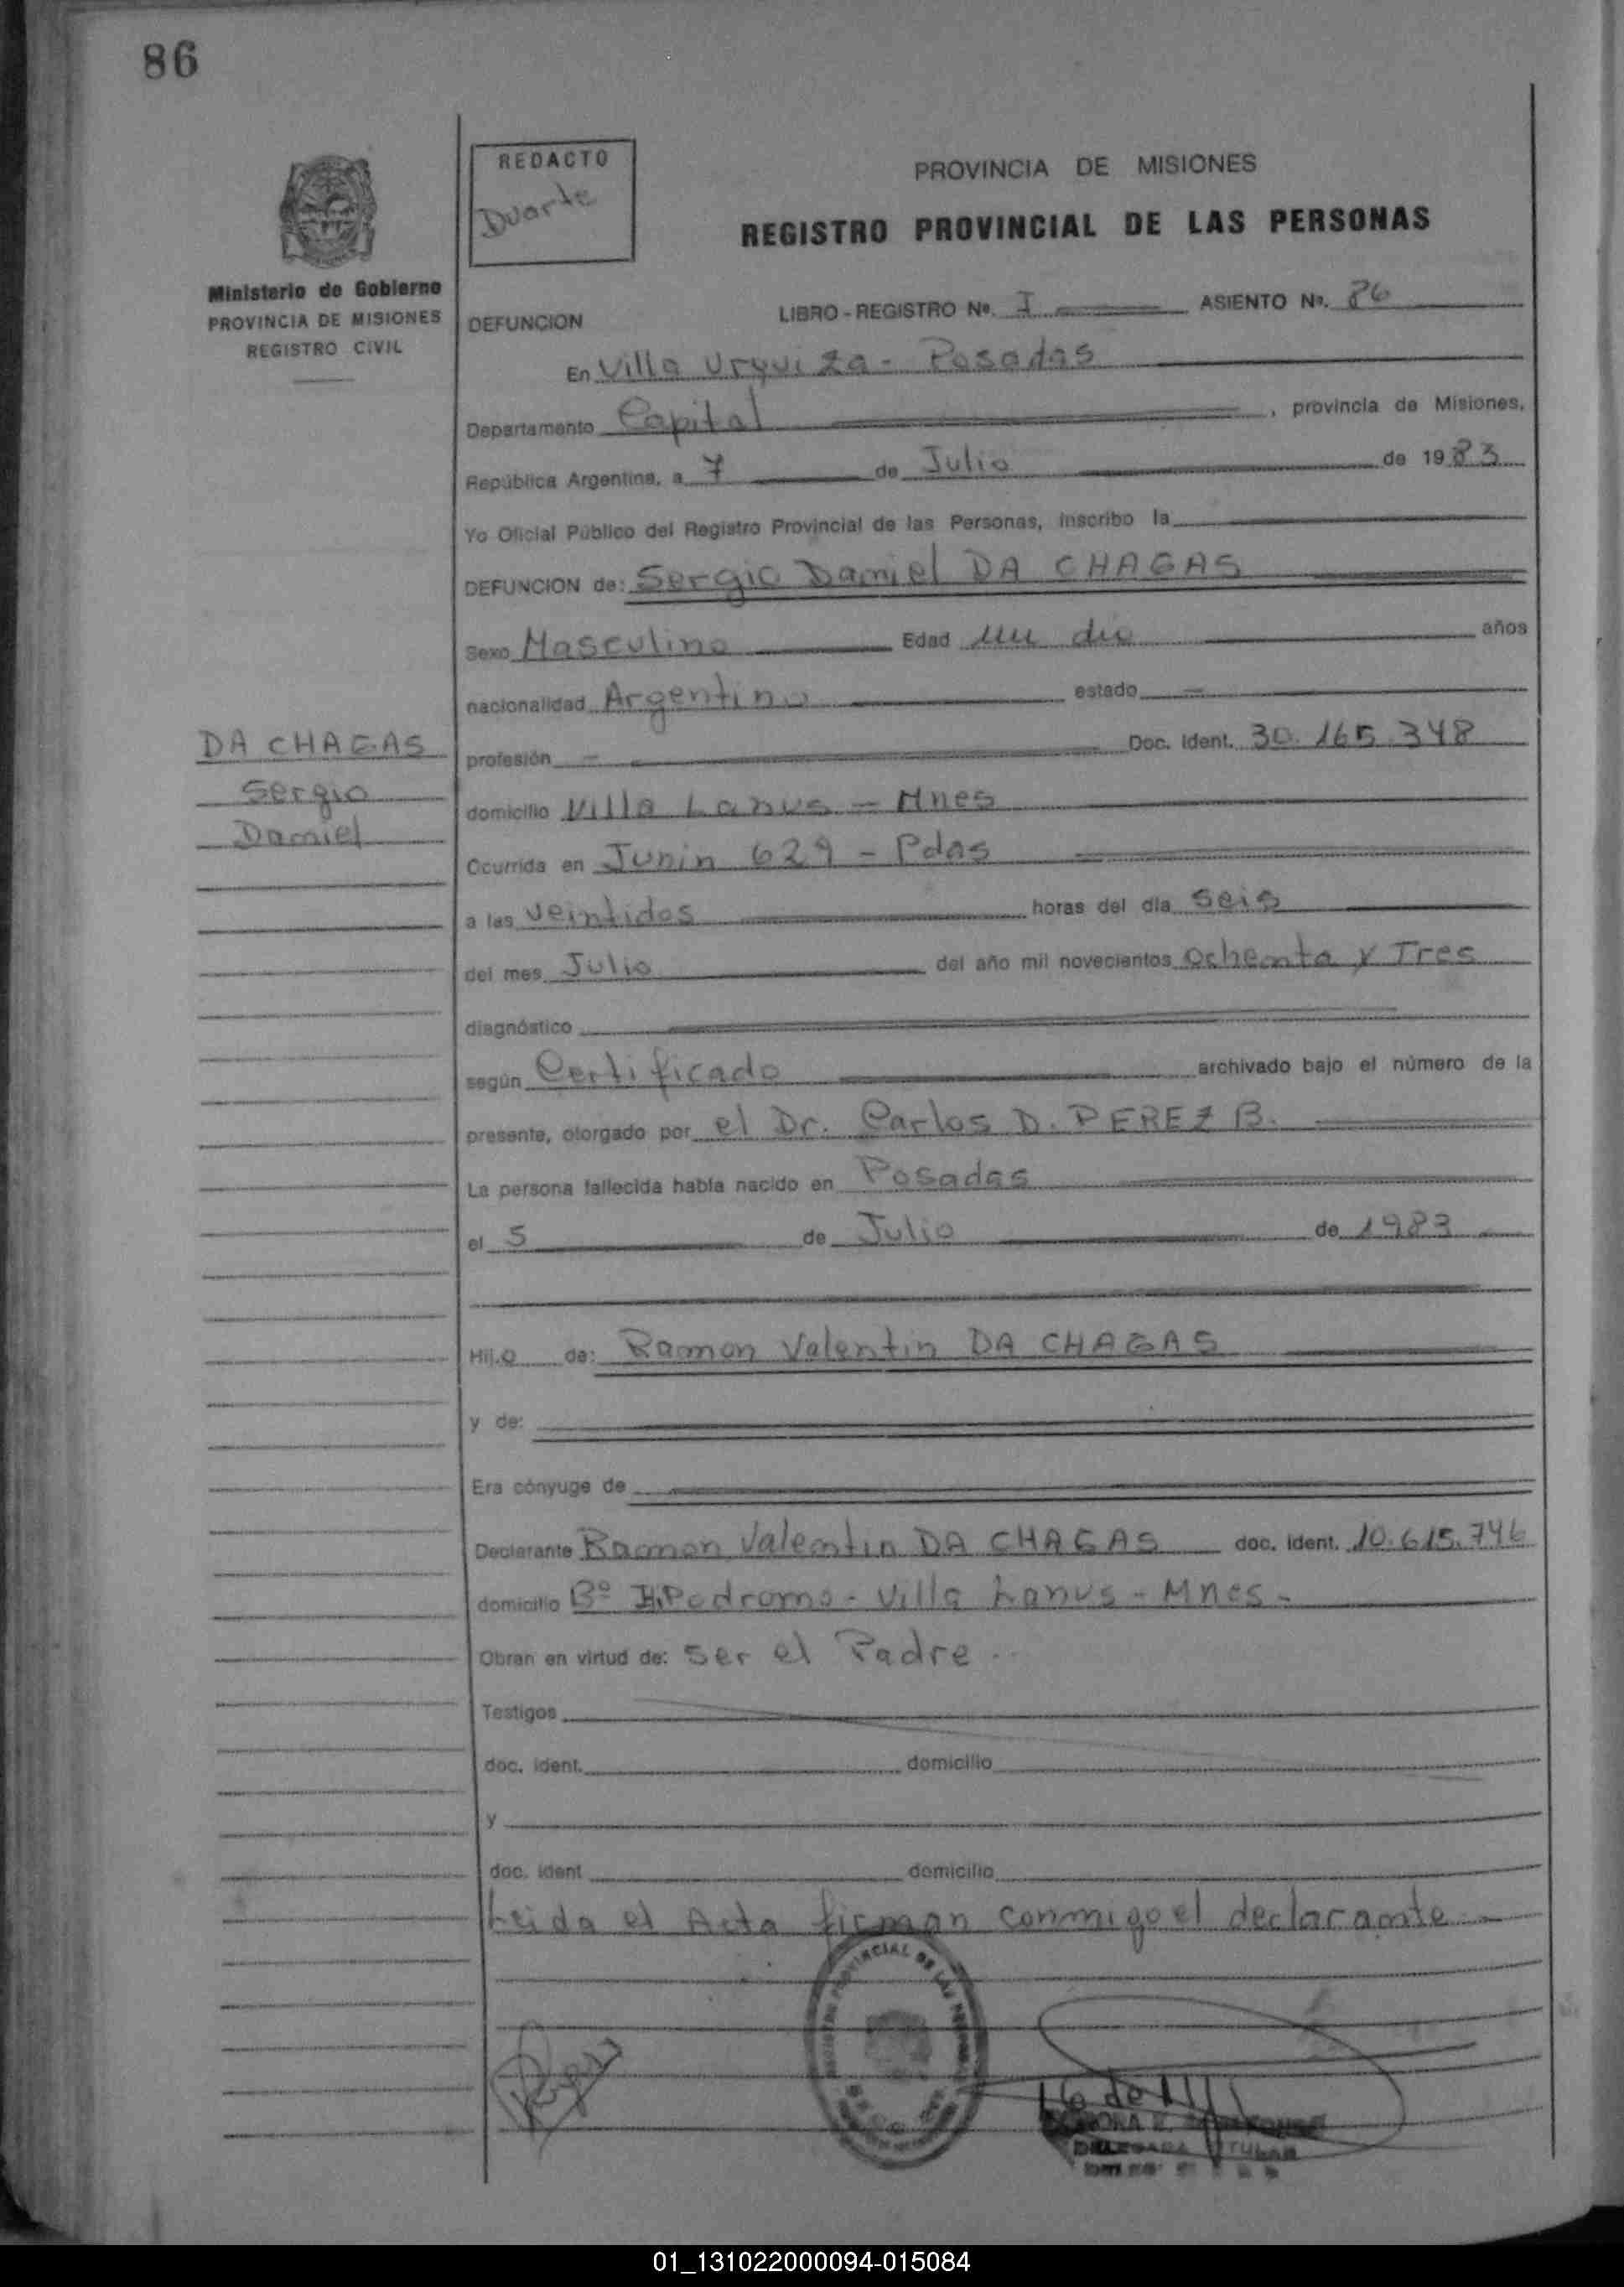 86
REDACTO
Duarte
PROVINCIA DE MISIONES
REGISTRO PROVINCIAL DE LAS PERSONAS
Ministerio de Gobierno
PROVINCIA DE MISIONES
REGISTRO CIVIL
DEFUNCION
LIBRO - REGISTRO Nº. I ASIENTO Nº. 86
En Villa Urquiza - Posadas
Departamento Capital, provincia de Misiones,
República Argentina, a 7 de Julio de 1983
Yo Oficial Público del Registro Provincial de las Personas, inscribo la
DEFUNCION de: Sergio Daniel DA CHAGAS
Sexo Masculino Edad un dia años
nacionalidad Argentina estado -
DA CHAGAS
Sergio
Daniel
profesión - Doc. Ident. 30.165.348
domicilio Villa Lanus - Mnes
Ocurrida en Junin 629 - Pdas
a las veintidos horas del día seis
del mes Julio del año mil novecientos ochenta y Tres
diagnóstico
según Certificado archivado bajo el número de la
presente, otorgado por el Dr. Carlos D. PEREZ B.
La persona fallecida había nacido en Posadas
el 5 de Julio de 1983
Hij.o de: Ramon Valentin DA CHAGAS
y de:
Era cónyuge de
Declarante Ramon Valentin DA CHAGAS doc. ident. 10.615.746
domicilio Bº Hipodromo - Villa Lanus - Mnes -
Obran en virtud de: ser el Padre.
Testigos
doc. ident. domicilio
y
doc. ident domicilio
Leida el Acta firman conmigo el declarante -
DELEGADA TITULAR
01_131022000094-015084